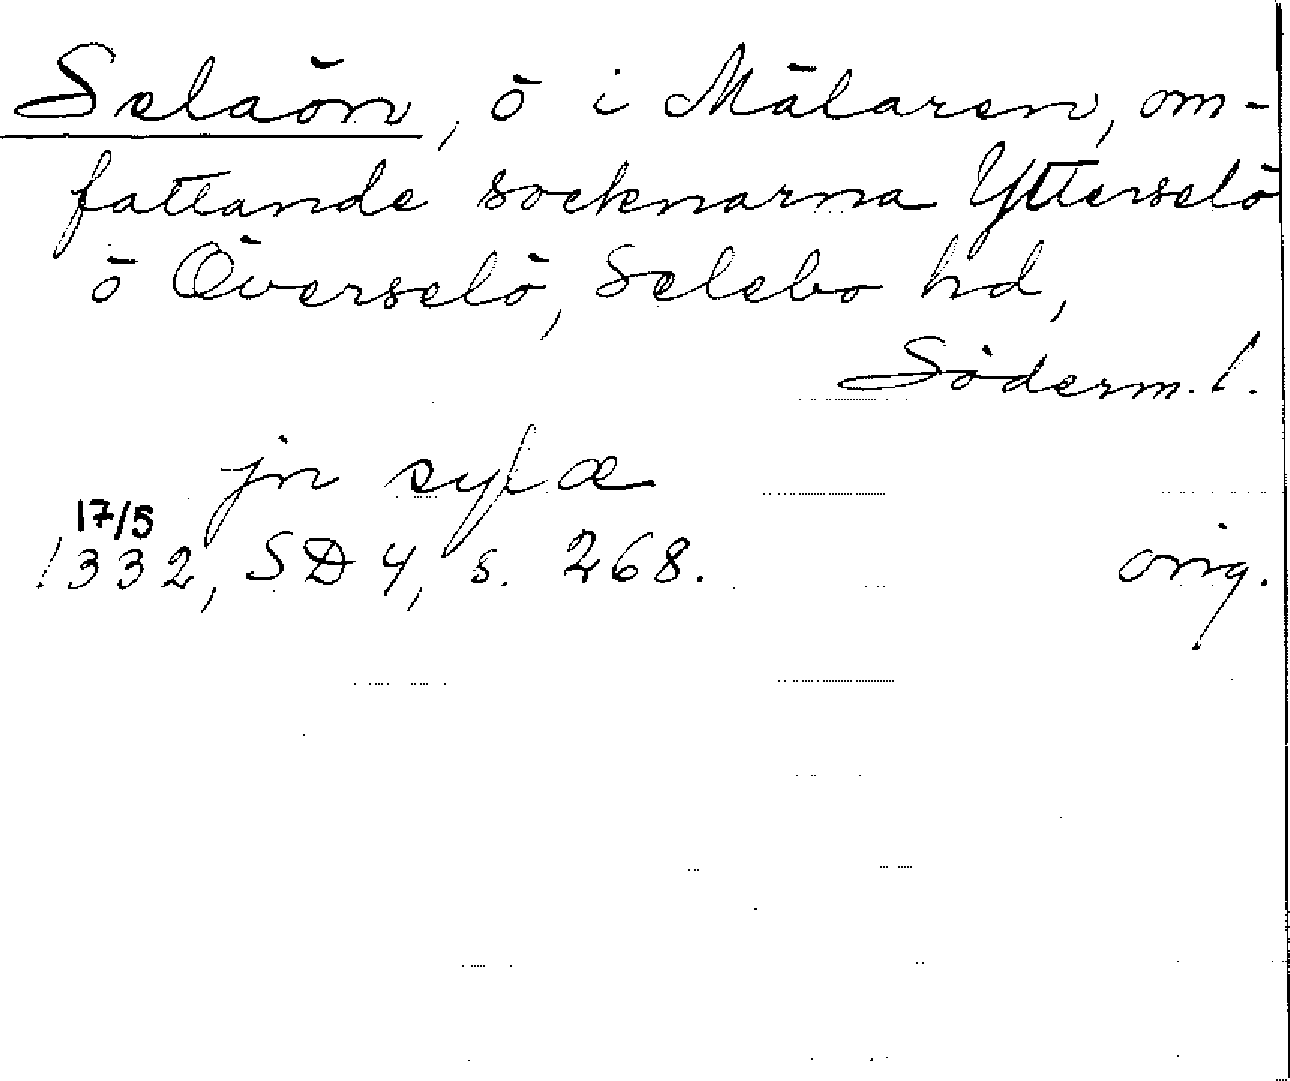 Selaön, ö i Mälaren, om-
fattande socknarna Ytterselö
o Överselö, Selebo hd,
Söderm. l.
jn
17/5
1332, SD 4, s. 268. orig.